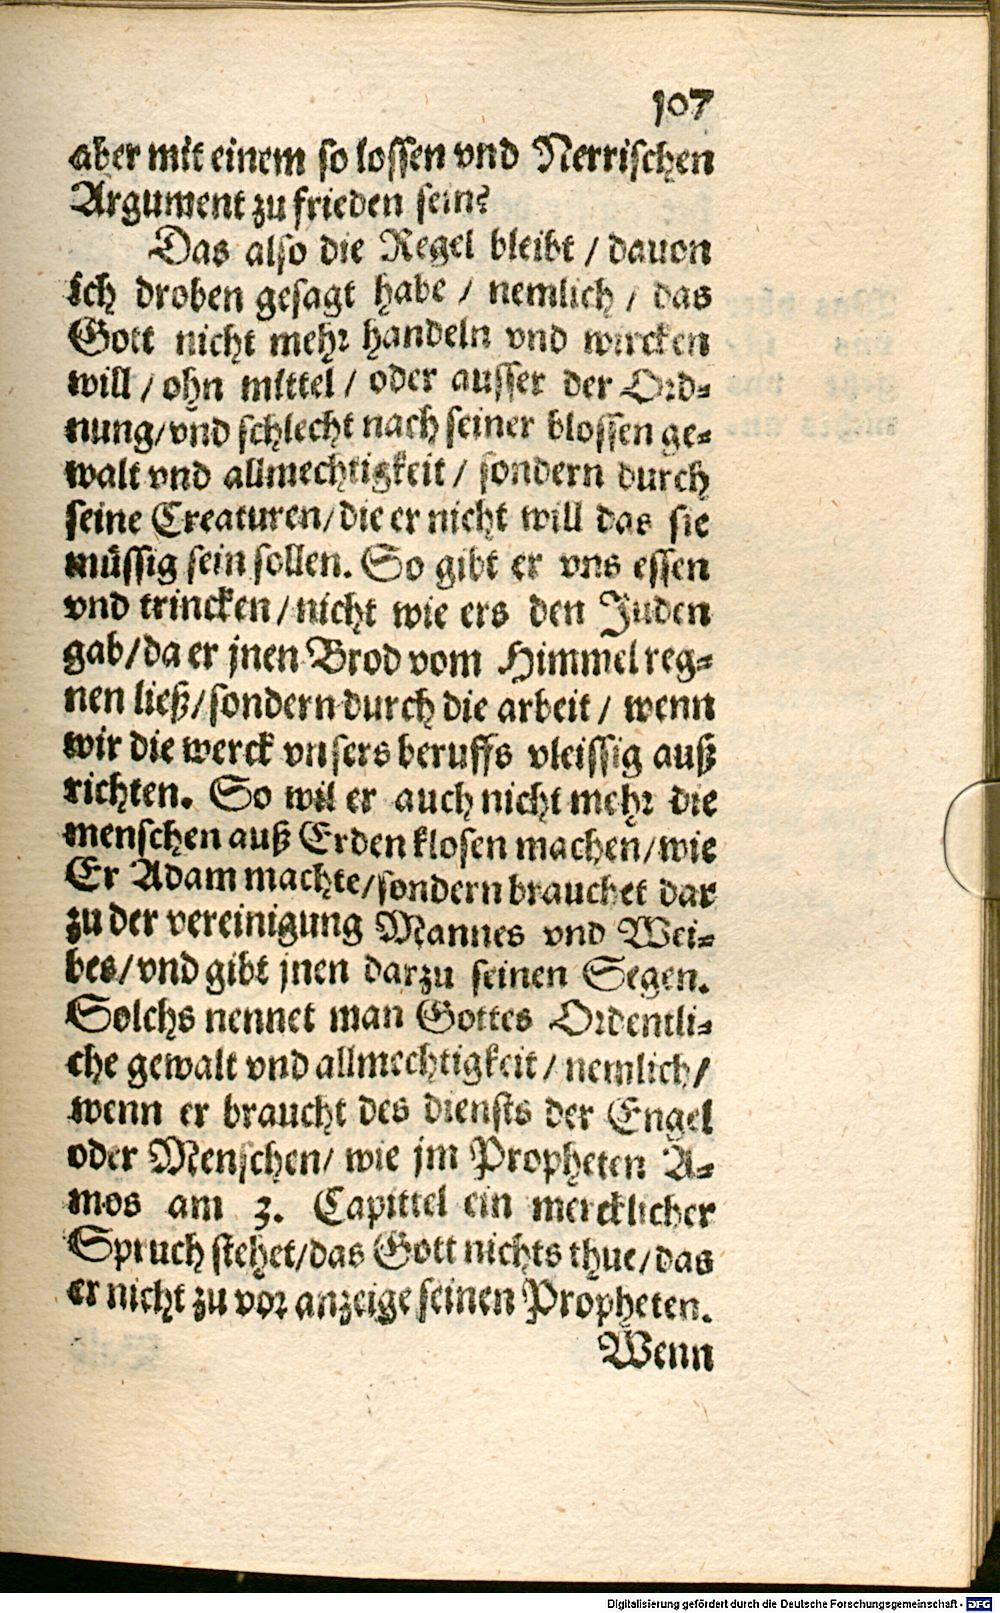 107
aber mit einem so lossen vnd Nerrischen
Argument zu frieden sein?
Das also die Regel bleibt / dauon
ich droben gesagt habe / nemlich / das
Gott nicht mehr handeln vnd wircken
will / ohn mittel / oder ausser der Ord-
nung/vnd schlecht nach seiner blossen ge-
walt vnd allmechtigkeit / sondern durch
seine Creaturen/die er nicht will das sie
müssig sein sollen. So gibt er vns essen
vnd trincken/nicht wie ers den Juden
gab/da er jnen Brod vom Himmel reg-
nen ließ/sondern durch die arbeit / wenn
wir die werck vnsers beruffs vleissig auß
richten. So wil er auch nicht mehr die
menschen auß Erden klosen machen/wie
Er Adam machte/sondern brauchet dar
zu der vereinigung Mannes vnd Wei-
bes/vnd gibt jnen darzu seinen Segen.
Solchs nennet man Gottes Ordentli-
che gewalt vnd allmechtigkeit / nemlich/
wenn er braucht des diensts der Engel
oder Menschen/ wie jm Propheten A-
mos am 3. Capittel ein mercklicher
Spruch stehet/das Gott nichts thue/das
er nicht zu vor anzeige seinen Propheten.
Wenn
Digitalisierung gefördert durch die Deutsche Forschungsgemeinschaft - DFG